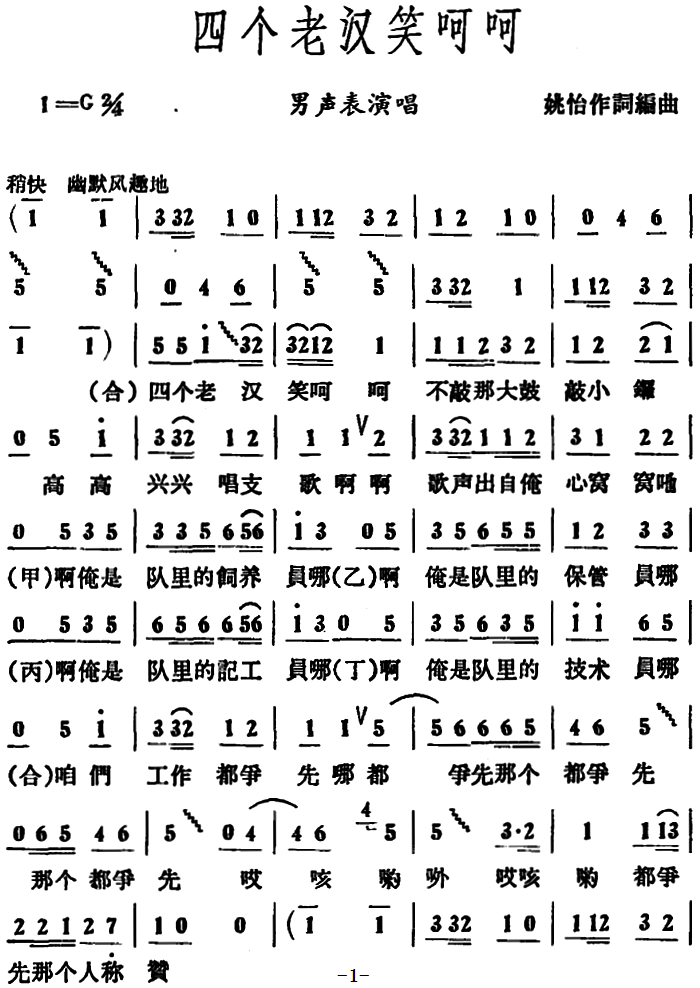 四个老汉笑呵呵
1=G 2/4 男声表演唱 姚怡作詞編曲
稍快 幽默风趣地
(1 1 | 3 32 1 0 | 1 12 3 2 | 1 2 1 0 | 0 4 6 |
5 5 | 0 4 6 | 5 5 | 3 32 1 | 1 12 3 2 |
1 1) | 5 5 i 32 | 3212 1 | 1 1 2 3 2 | 1 2 2 1 |
(合)四个老 汉 笑呵 呵 不敲那大鼓 敲小 鑼
0 5 i | 3 32 1 2 | 1 1 V 2 | 3 32 1 1 2 | 3 1 2 2 |
高 高 兴兴 唱支 歌 啊 啊 歌声出自俺 心窝 窝吔
0 5 3 5 | 3 3 5 6 56 | i 3 0 5 | 3 5 6 5 5 | 1 2 3 3 |
(甲)啊俺是 队里的飼养 員哪(乙)啊 俺是队里的 保管 員哪
0 5 3 5 | 6 5 6 6 56 | i 3 0 5 | 3 5 6 3 5 | i i 6 5 |
(丙)啊俺是 队里的記工 員哪(丁)啊 俺是队里的 技术 員哪
0 5 i | 3 32 1 2 | 1 1 V 5 | 5 6 6 6 5 | 4 6 5 |
(合)咱 們 工作 都爭 先 哪 都 爭先那个 都爭 先
0 6 5 4 6 | 5 0 4 | 4 6 4 5 | 5 3·2 | 1 1 13 |
那个 都爭 先 哎 咳 喲 外 哎咳 喲 都爭
2 2 1 2 7 | 1 0 0 | (1 1 | 3 32 1 0 | 1 12 3 2 |
先那个人称 贊
-1-